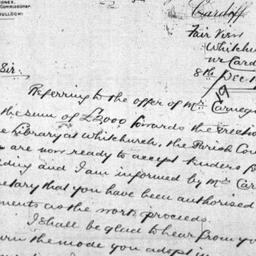 Cardiff
Fair View
Whitchurch
nr Card
8th Dec 1
19
Sir:
Referring to the offer of Mr Carnegie
the sum of £2,000 towards the Erection
e Library at Whitchurch, the Parish Cou
are now ready to accept tenders f
ding and I am informed by Mr Car
etary that you have been authorised
ments as the work proceeds.
I shall be glad to hear from you
urn the mode you adopt